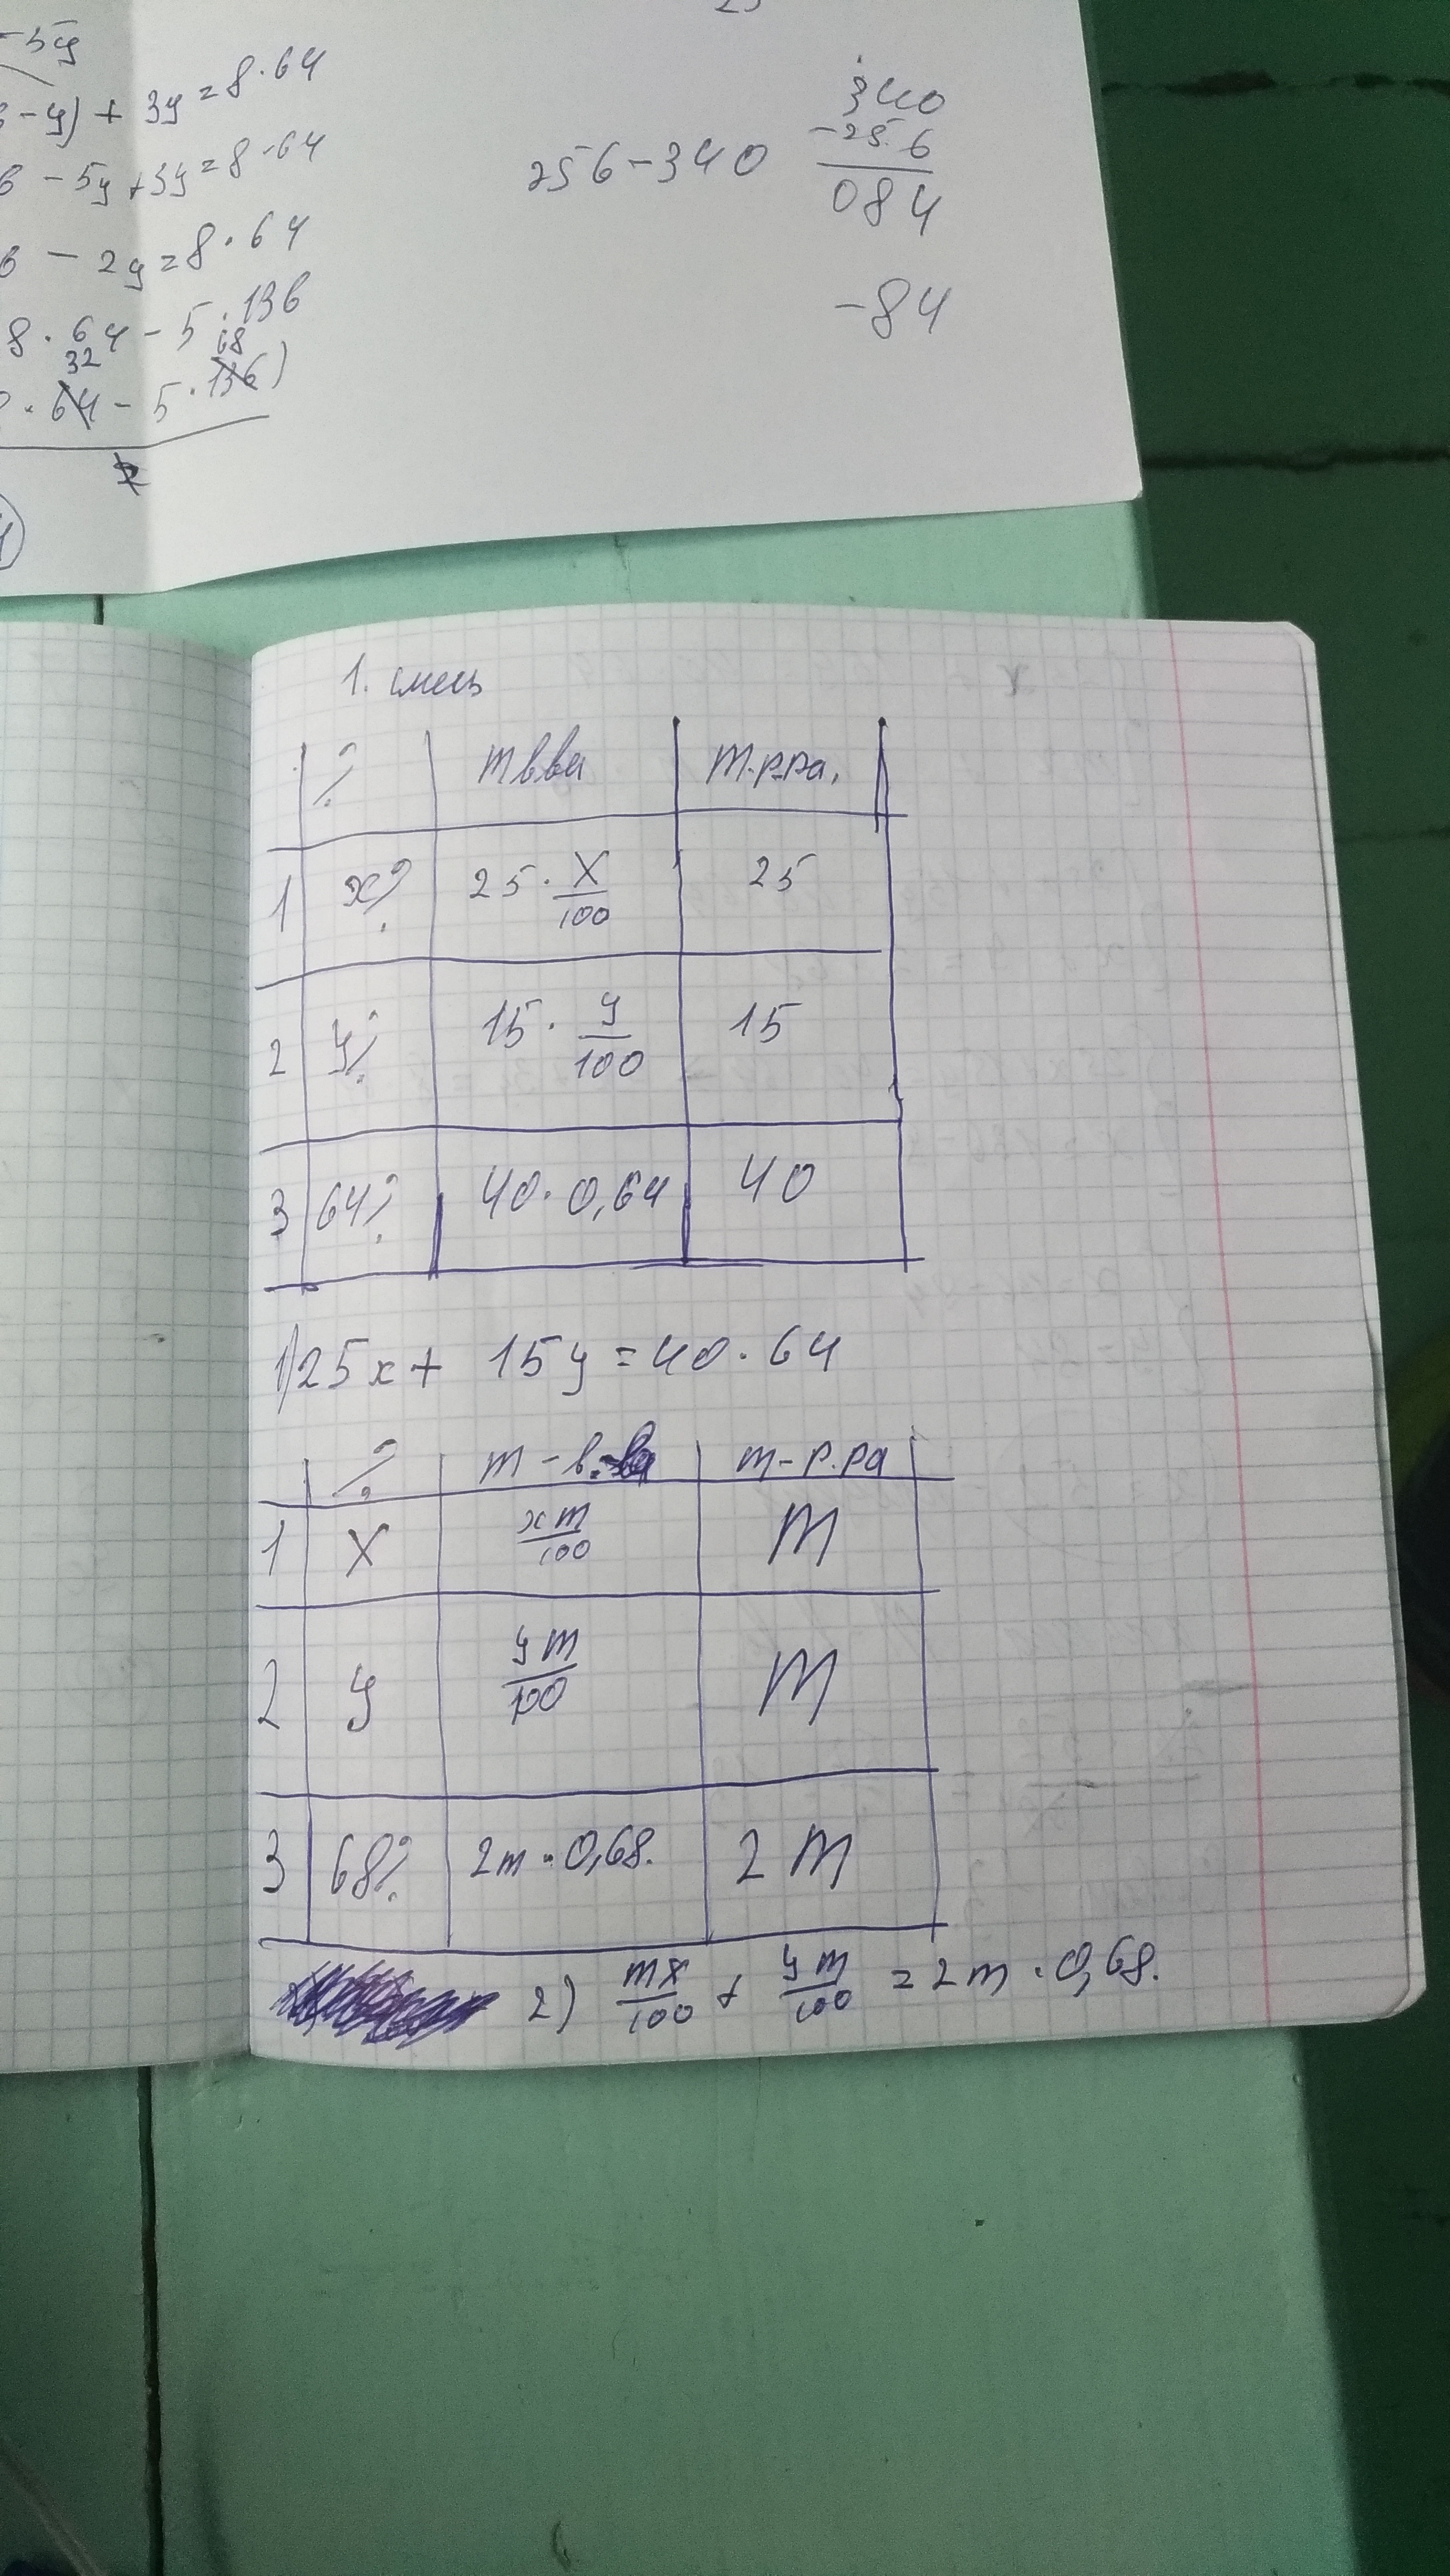 -5y
-y) + 3y = 8·64
6 - 5y + 3y = 8·64
6 - 2y = 8·64
8·64 - 5·136
32 68
·64 - 5·136)
2
256-340
340
-256
084
-84
1. смесь
% mв-ва m.р-ра,
1 x% 25·x/100 25
2 y% 15·y/100 15
3 64% 40·0,64 40
1) 25x + 15y = 40·64
% m-в-ва m-р.ра
1 x xm/100 m
2 y ym/100 m
3 68% 2m·0,68. 2m
2) mx/100 + ym/100 = 2m·0,68.